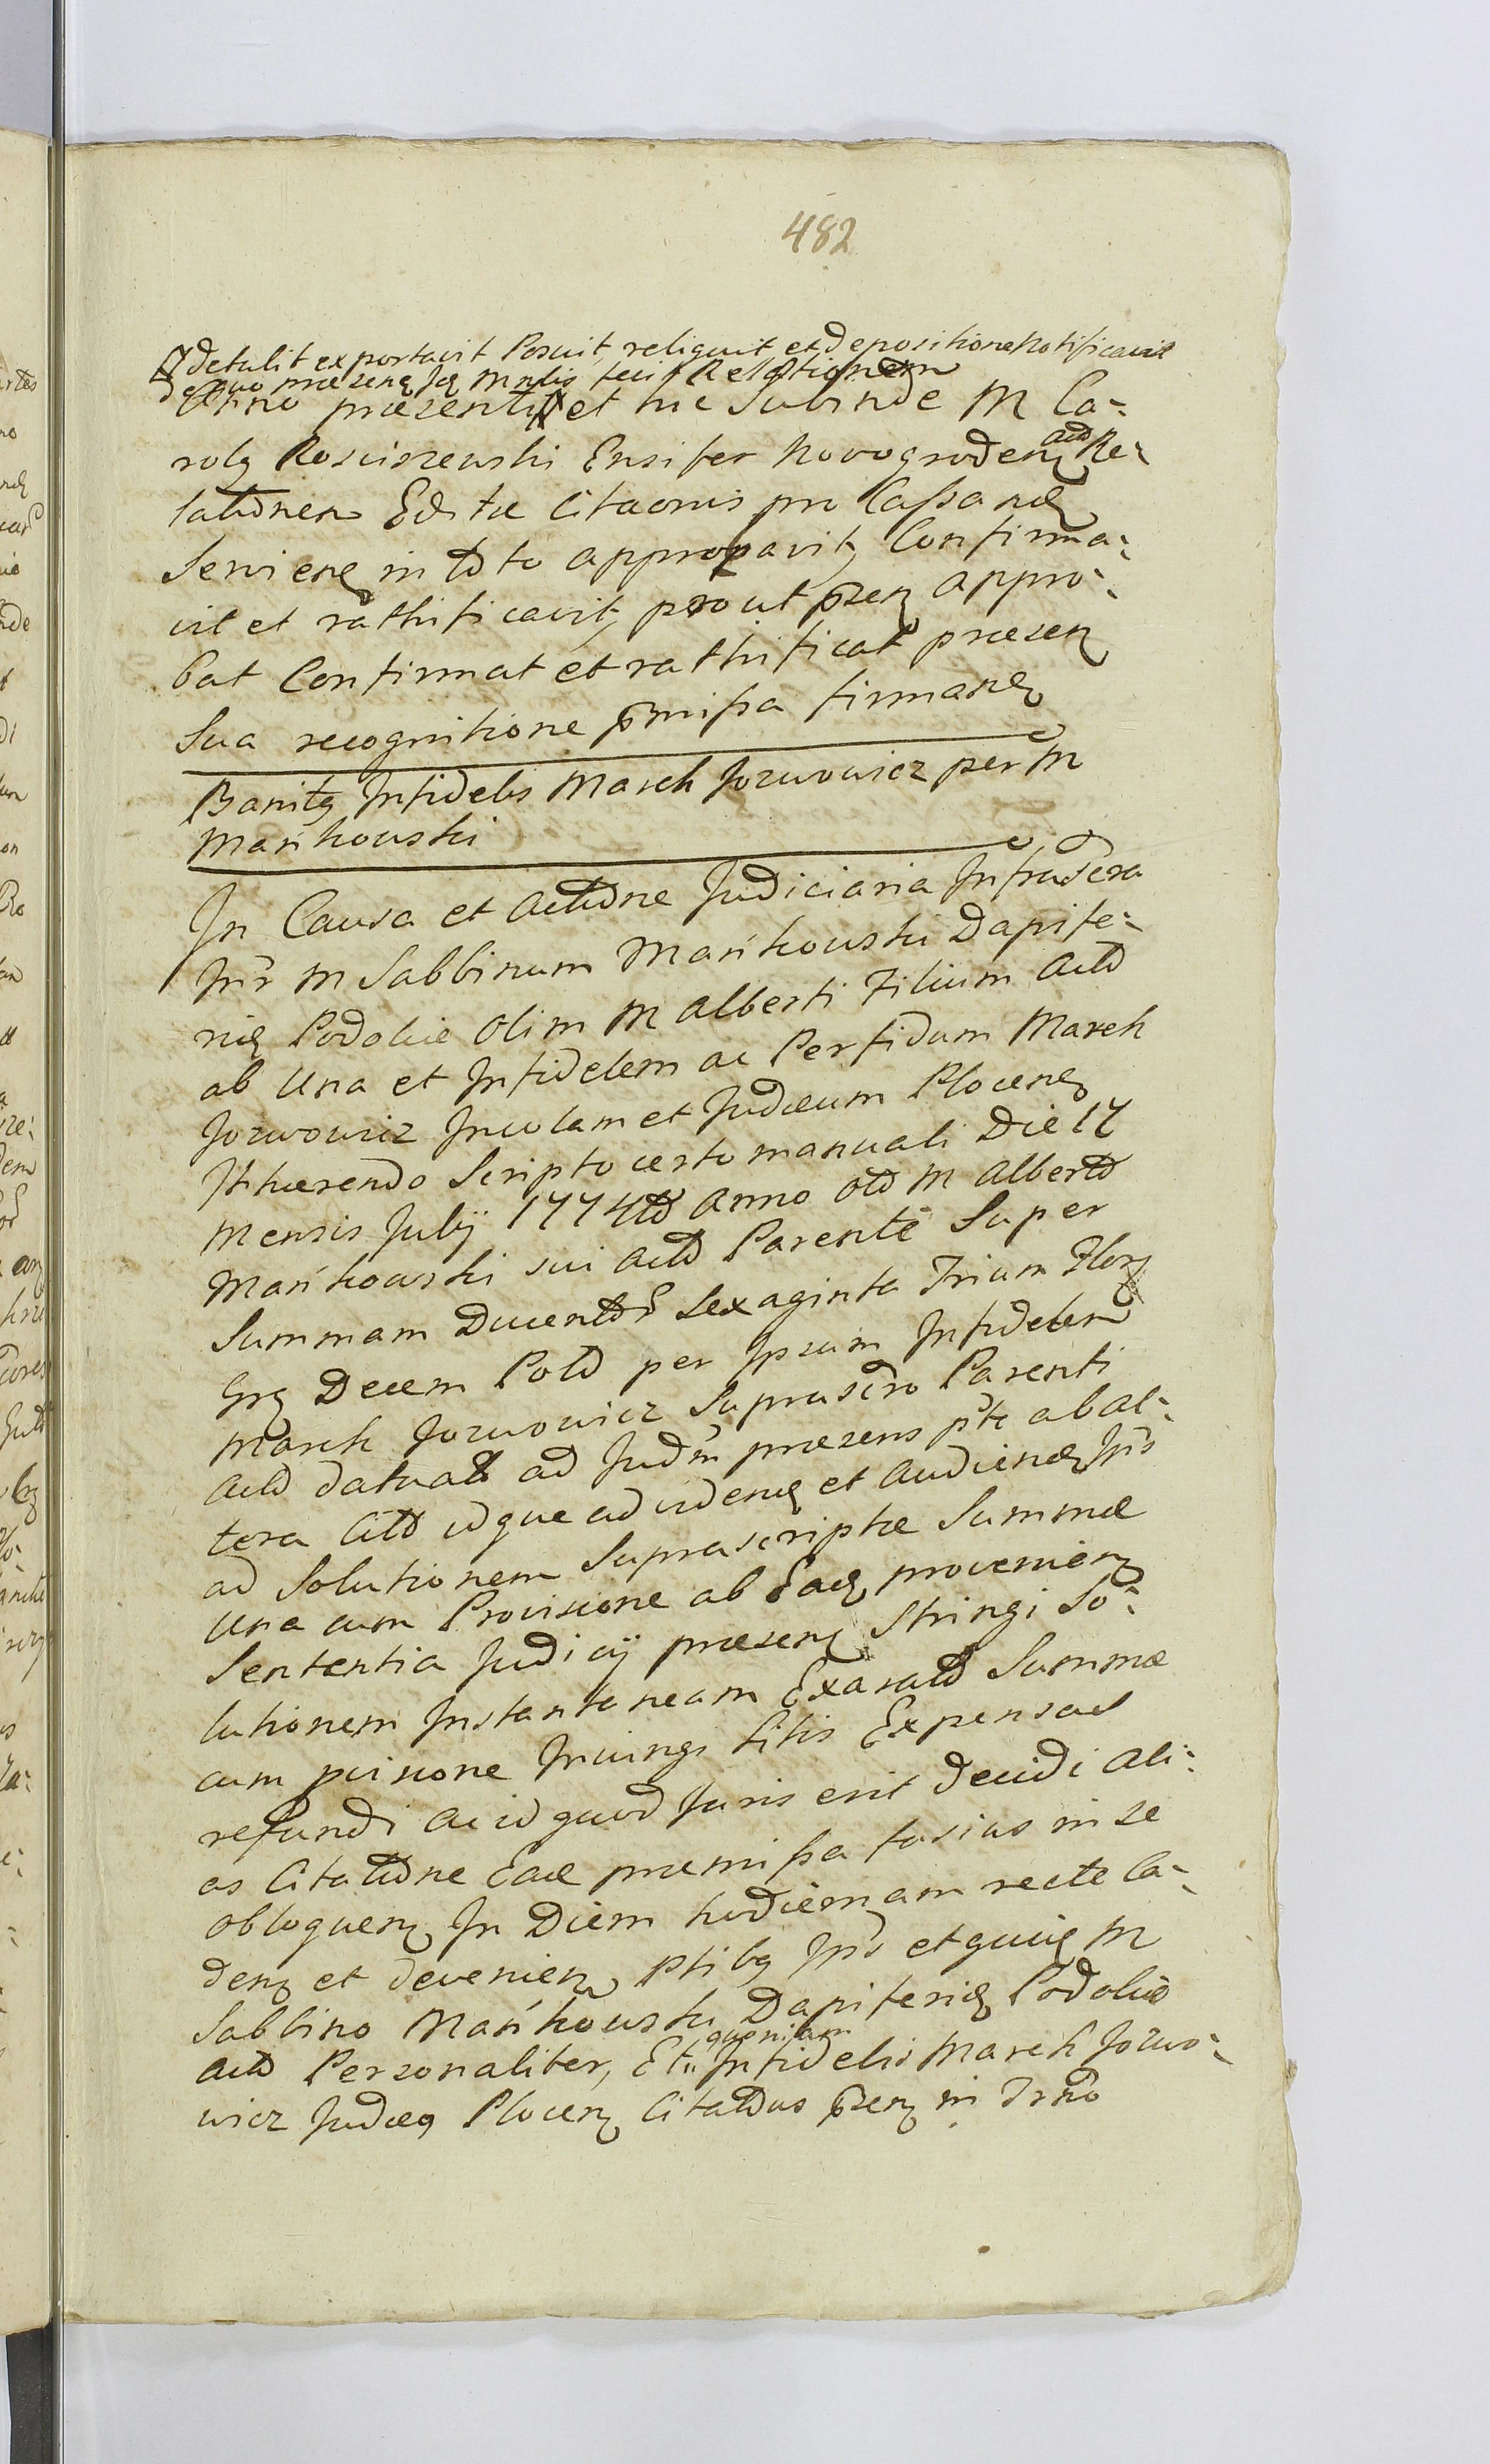 482
detulit exportavit Posuit, reliquit et depositione notificavit
de quo præsenq Jq mnlis fecit Relationem
Anno præsenti et hic Subinde M Ca-
rolq Rosciszewski Ensifer Novogrodenq actd Re-
latdnem Edtæ Citaonis pro Cassandq
Servienq in tdto approbavit, Confirma-
vit et rathificavit, prout przenq appro-
bat Confirmat et rathificat præsenq
Sua recognitione pmissa firmandq
Banitq Infidelis March Jozwowicz per M
Mańkowski
In Causa et Actdne Judiciaria Infrascra
Intr M Sabbinum Mańkowski Dapife-
riq Podoliæ Olim M Alberti Filium Actd
ab Una et Infidelem ac Perfidum March
Jozwowicz Incolam et Judæum Plocenq
Inhærendo Scripto certo manuali Die 17
Mensis Julij 1774td Anno Otd M Albertd
Mańkowski sui Actd Parente Super
Summam Ducentdr Sexaginta Trium Florq
Grq Decem Poltd per Ipsum Infidelem
March Jozwowicz Suprascro Parenti
Actd datual ad Judm præsens pte ab al-
tera Cittd idque ad videndq et Audiendq Ips
ad Solutionem Suprascriptæ Summæ
Una cum Provisione ab Eadq provenienq
Sententia Judicij præsenq Stringi So-
lutionem Instantaneam Exaratd Summæ
cum pvisione Iniungi Litis Expensas
refundi ac id quod Juris erit decidi ali-
as Citatdne Eade præmissa fusius in se
obloquenq In Diem hodiernam recte ca-
denq et devenienq Ptibq Ips et quidq M
Sabbino Mańkowski Dapiferiq Podoliæ
Actd Personaliter, Et quoniam Infidelis March Jozwo-
wicz Judæq Plocenq Citatdus przenq in Trno